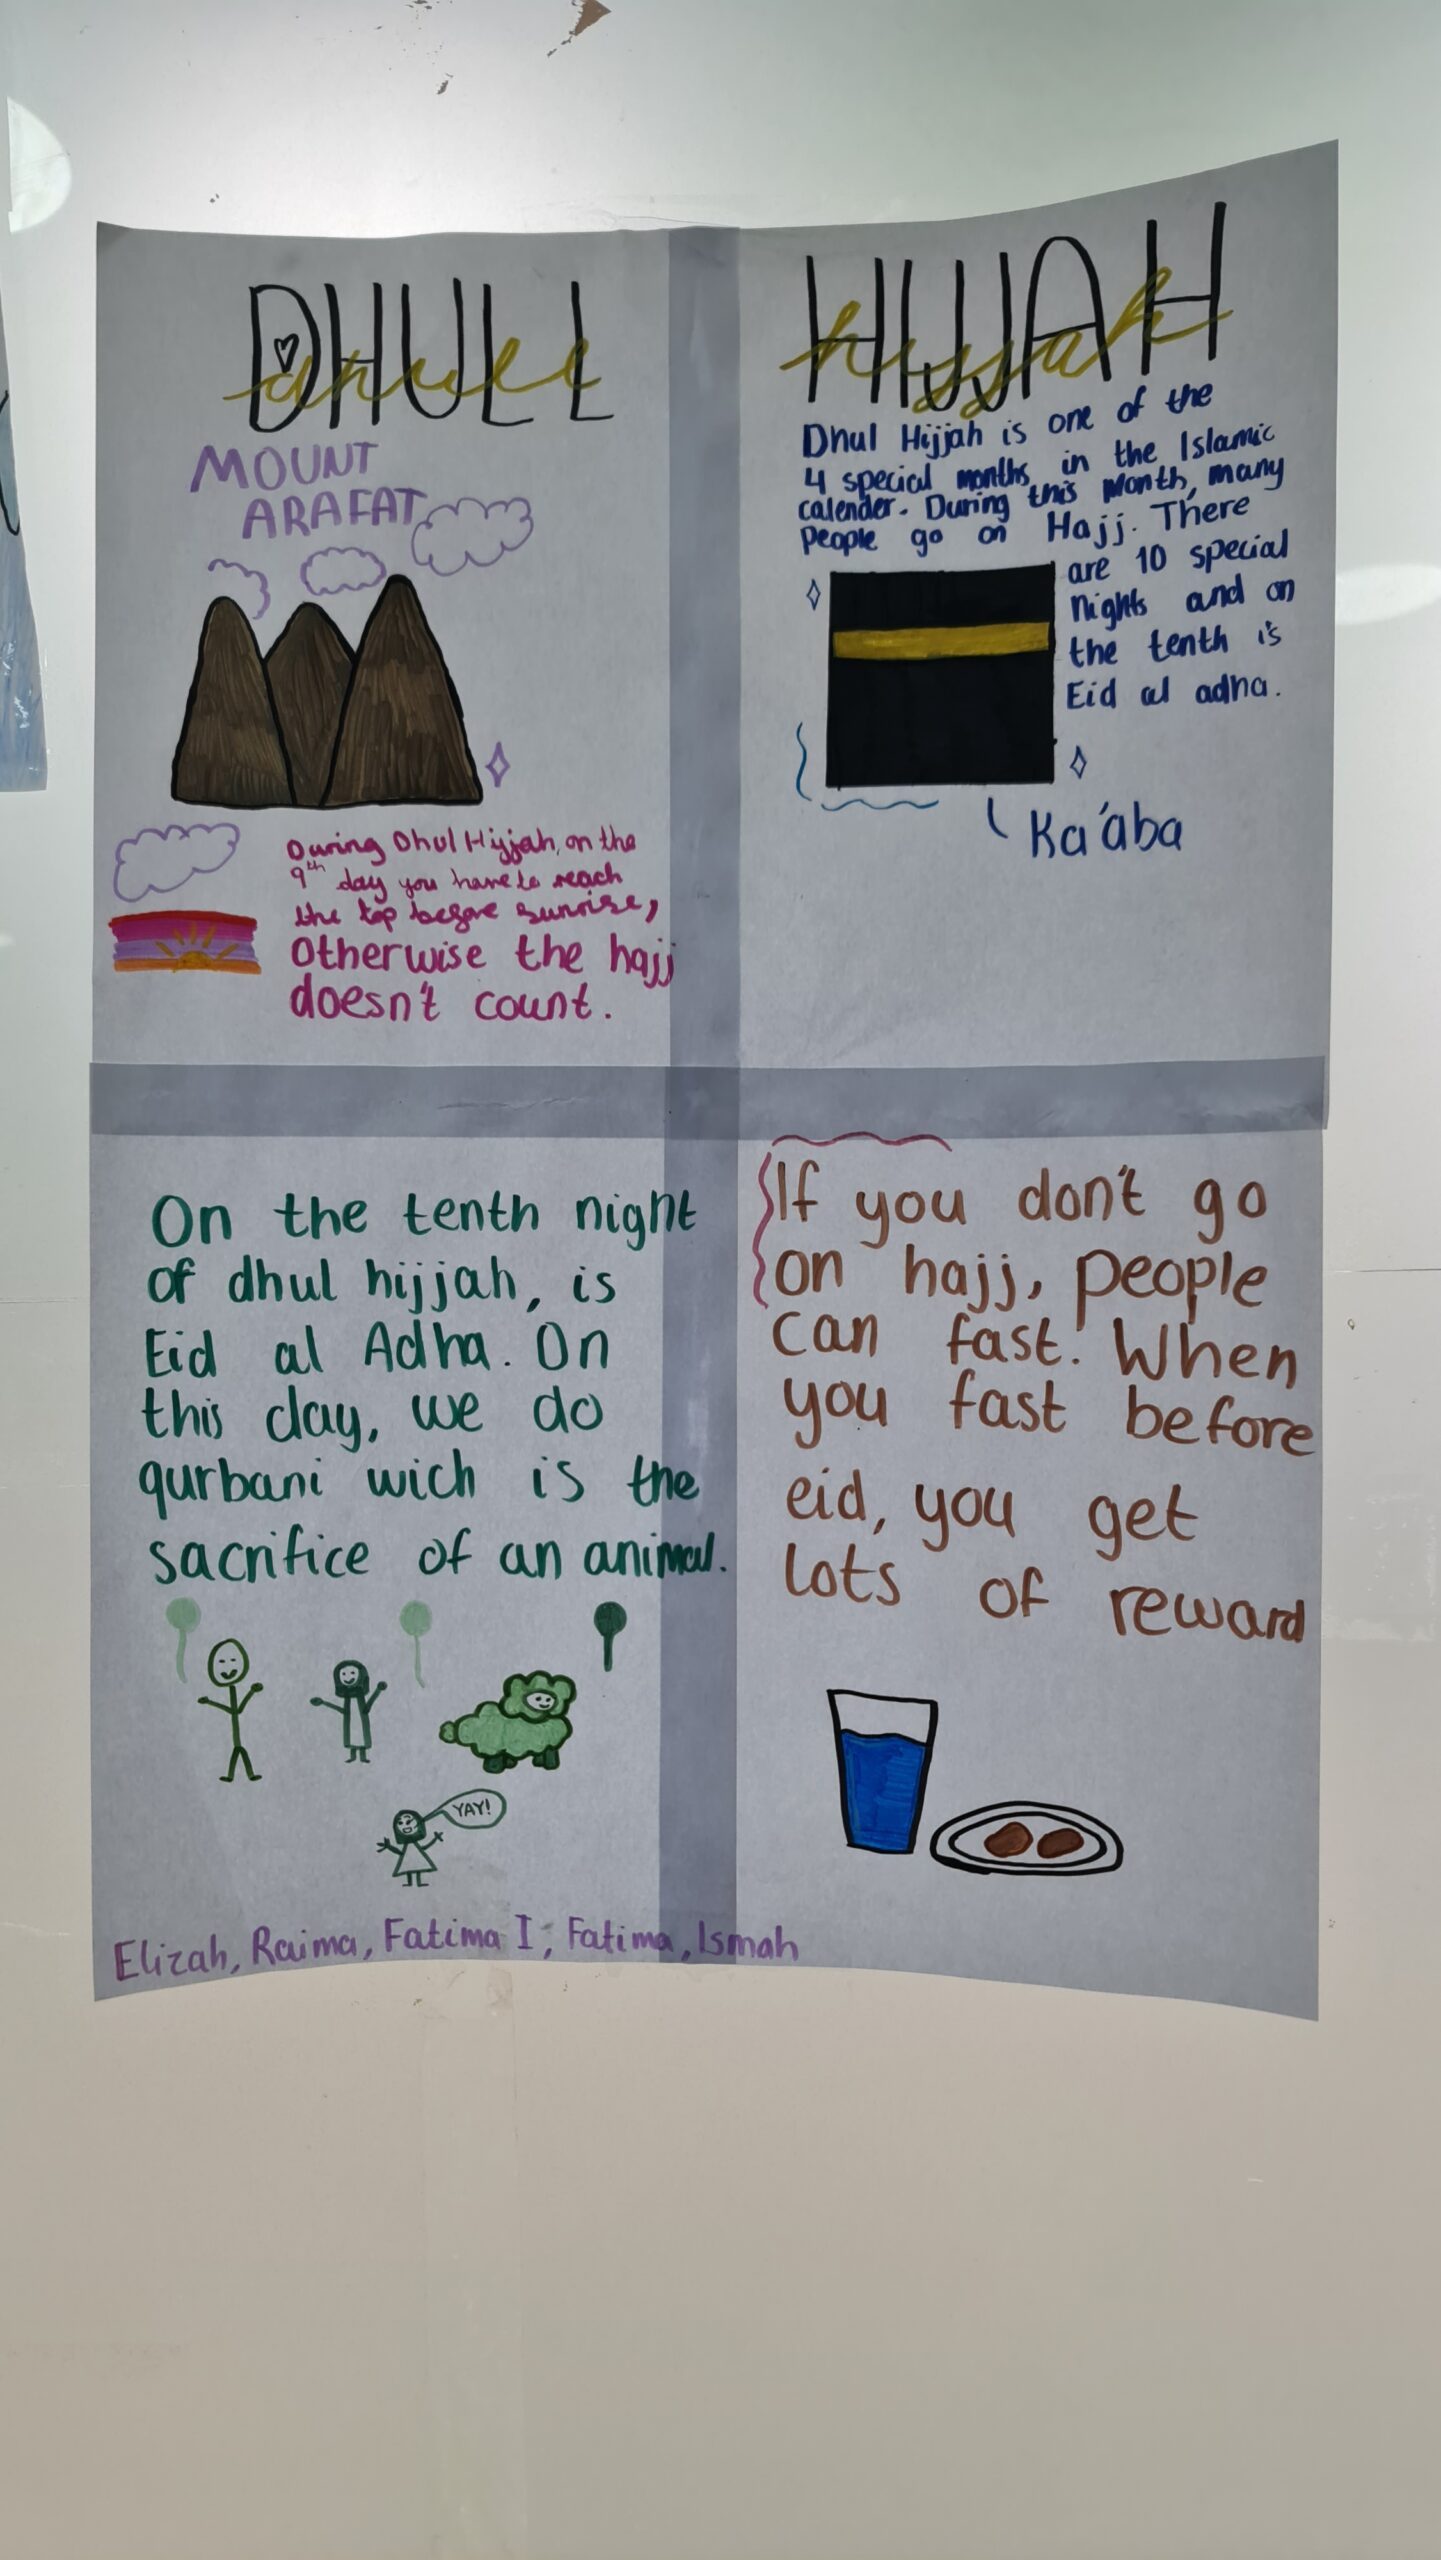 DHULL
dhull
MOUNT
ARAFAT
During Dhul Hijjah, on the
9th day you have to reach
the top before sunrise,
Otherwise the hajj
doesn't count.
HIJJAH
hijjah
Dhul Hijjah is one of the
4 special months in the Islamic
calender. During this month, many
people go on Hajj. There
are 10 special
nights and on
the tenth is
Eid al adha.
Ka'aba
On the tenth night
of dhul hijjah, is
Eid al Adha. On
this day, we do
qurbani wich is the
sacrifice of an animal.
YAY!
If you don't go
on hajj, people
can fast. When
you fast before
eid, you get
lots of reward
Elizah, Raima, Fatima I, Fatima, Ismah